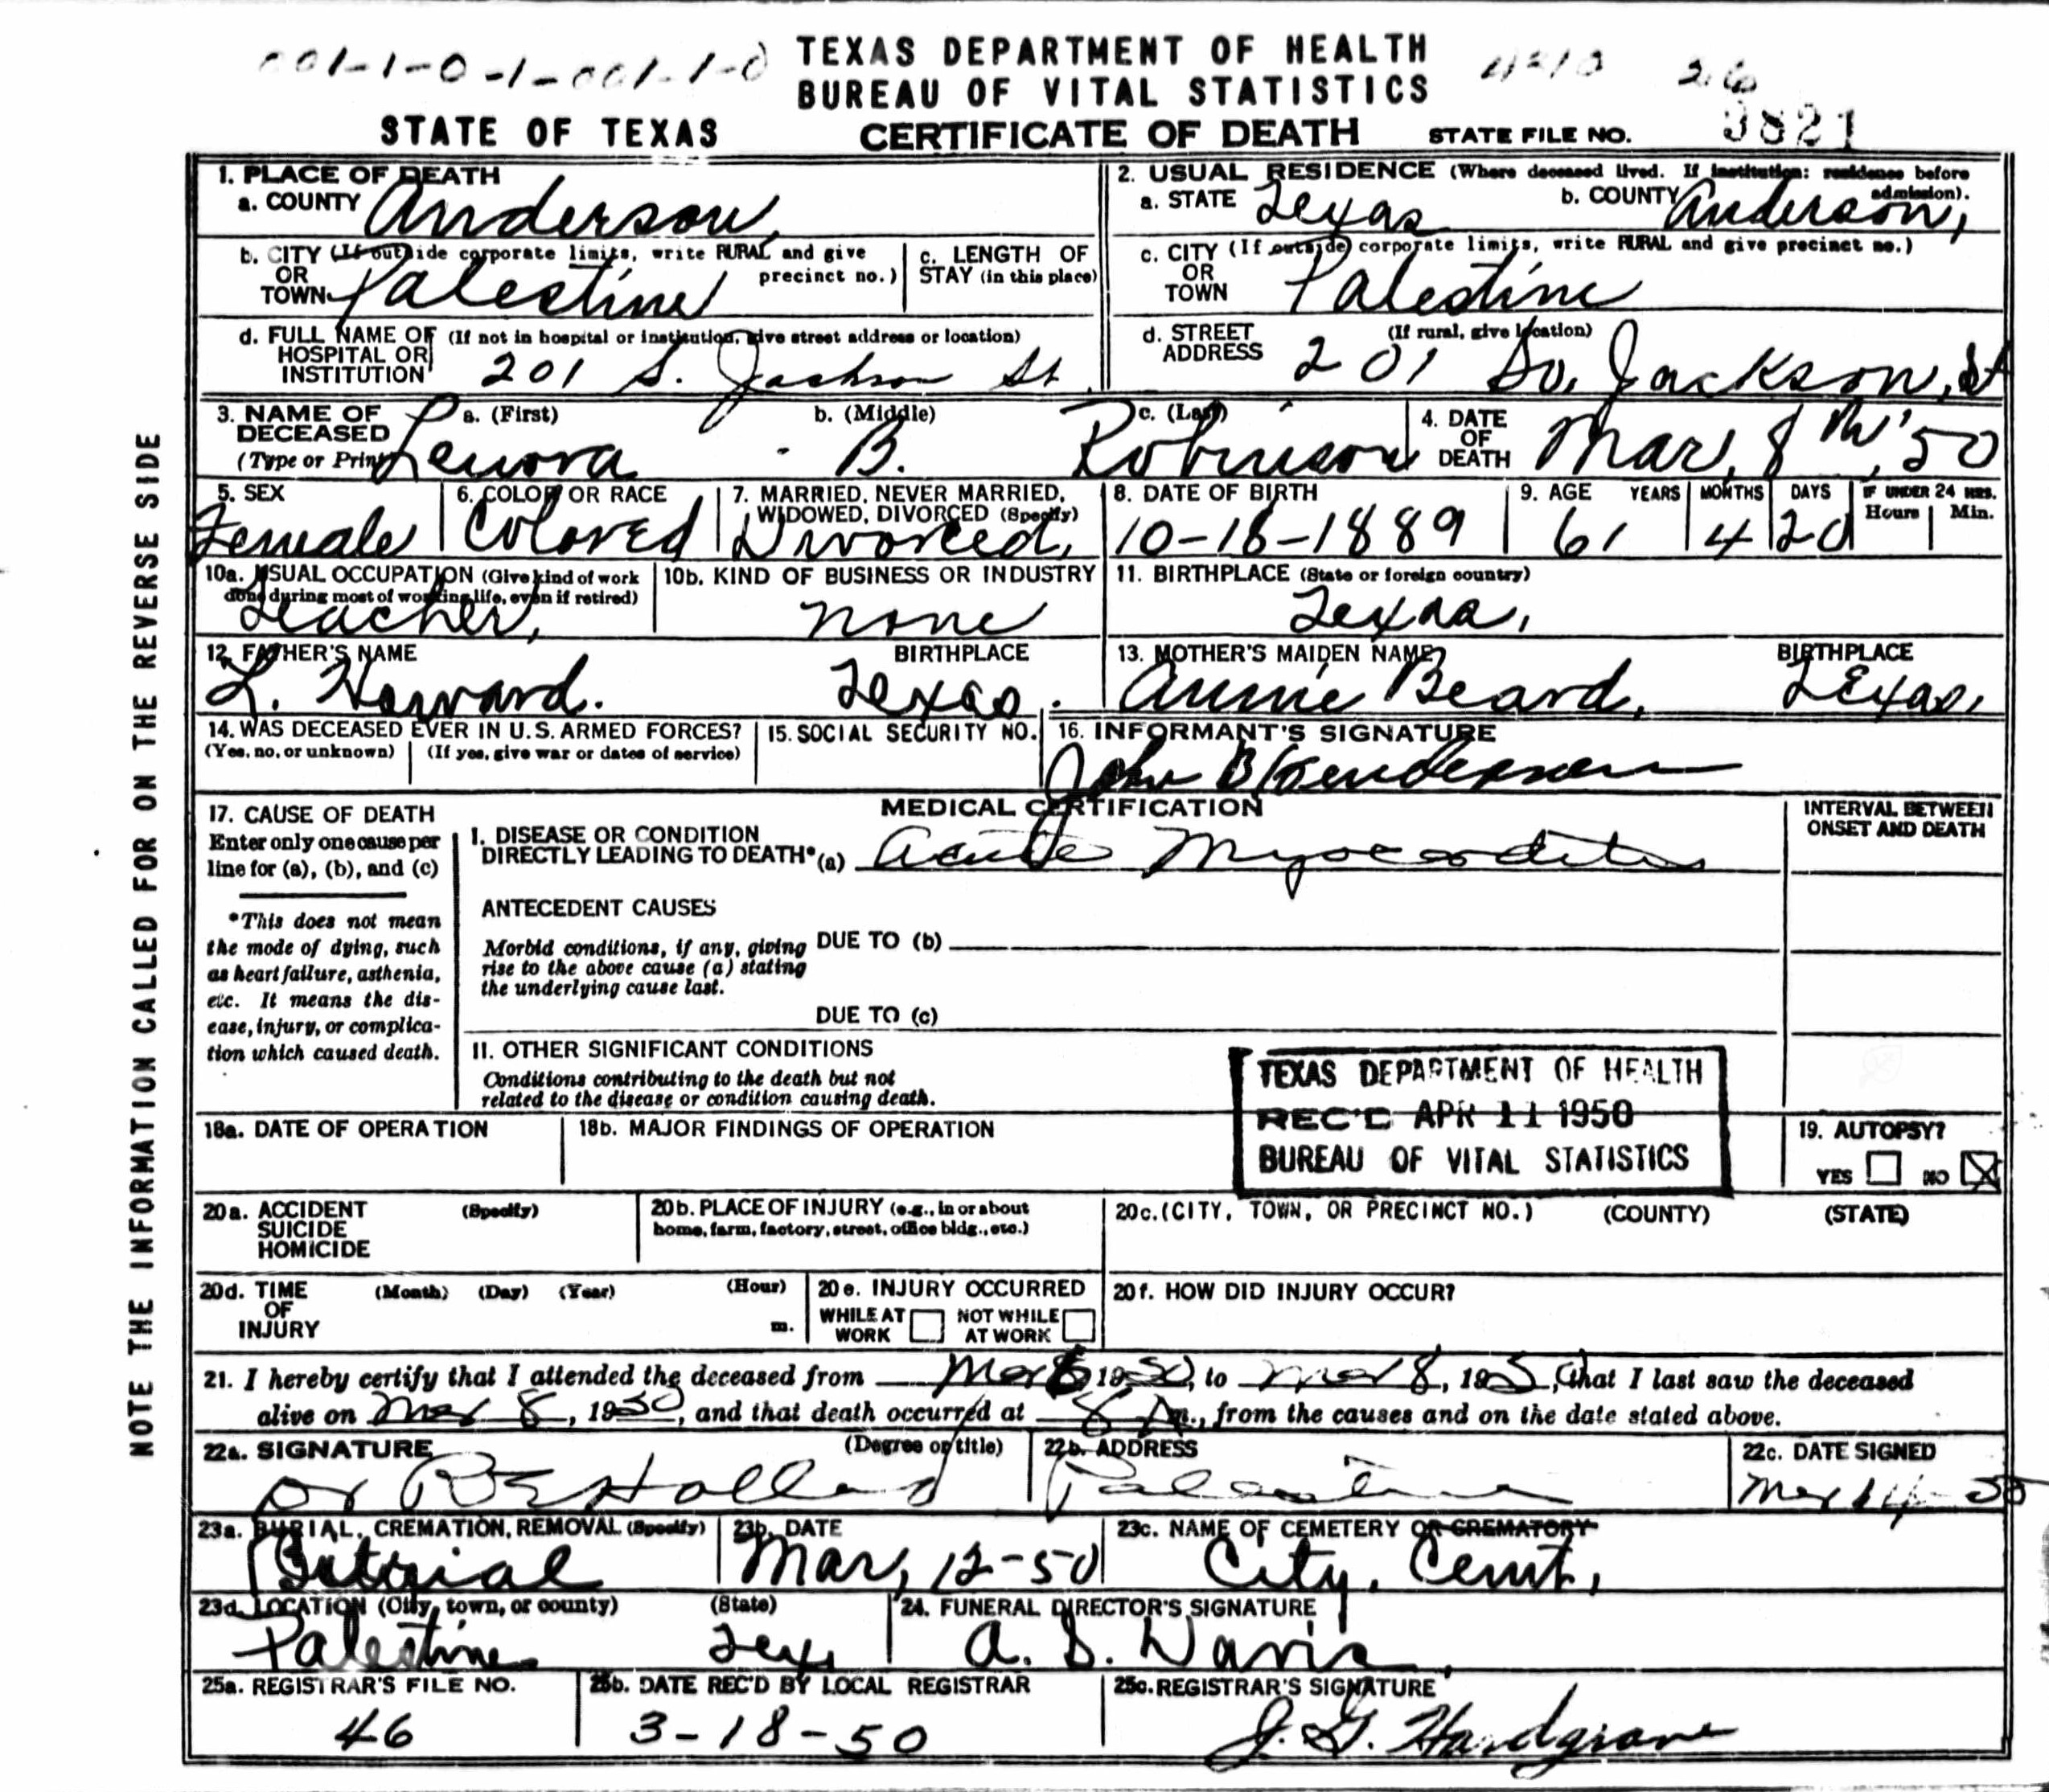 001-1-0-1-001-1-0
TEXAS DEPARTMENT OF HEALTH
BUREAU OF VITAL STATISTICS
26
STATE OF TEXAS CERTIFICATE OF DEATH STATE FILE NO. 9821
1. PLACE OF DEATH
a. COUNTY Anderson,
2. USUAL RESIDENCE (Where deceased lived. If institution: residence before admission).
a. STATE Texas b. COUNTY Anderson,
b. CITY (If outside corporate limits, write RURAL and give precinct no.)
OR
TOWN Palestine
c. LENGTH OF
STAY (in this place)
c. CITY (If outside corporate limits, write RURAL and give precinct no.)
OR
TOWN Palestine
d. FULL NAME OF (If not in hospital or institution, give street address or location)
HOSPITAL OR
INSTITUTION 201 S. Jackson St.
d. STREET (If rural, give location)
ADDRESS 201 So. Jackson, St
3. NAME OF a. (First) b. (Middle) c. (Last)
DECEASED
(Type or Print) Lenora - B. Robinson
4. DATE
OF
DEATH Mar. 8th, '50
5. SEX
Female
6. COLOR OR RACE
Colored
7. MARRIED, NEVER MARRIED,
WIDOWED, DIVORCED (Specify)
Divorced,
8. DATE OF BIRTH
10-18-1889
9. AGE YEARS MONTHS DAYS IF UNDER 24 HRS.
Hours Min.
61 4 20
10a. USUAL OCCUPATION (Give kind of work
done during most of working life, even if retired)
Teacher,
10b. KIND OF BUSINESS OR INDUSTRY
none
11. BIRTHPLACE (State or foreign country)
Texas,
12. FATHER'S NAME BIRTHPLACE
L. Howard. Texas.
13. MOTHER'S MAIDEN NAME BIRTHPLACE
Annie Beard, Texas,
14. WAS DECEASED EVER IN U.S. ARMED FORCES?
(Yes, no, or unknown) (If yes, give war or dates of service)
15. SOCIAL SECURITY NO.
16. INFORMANT'S SIGNATURE
John B Henderson
17. CAUSE OF DEATH
Enter only one cause per
line for (a), (b), and (c)
*This does not mean
the mode of dying, such
as heart failure, asthenia,
etc. It means the dis-
ease, injury, or complica-
tion which caused death.
MEDICAL CERTIFICATION
I. DISEASE OR CONDITION
DIRECTLY LEADING TO DEATH* (a) Acute Myocarditis
ANTECEDENT CAUSES
Morbid conditions, if any, giving
rise to the above cause (a) stating
the underlying cause last.
DUE TO (b)
DUE TO (c)
II. OTHER SIGNIFICANT CONDITIONS
Conditions contributing to the death but not
related to the disease or condition causing death.
INTERVAL BETWEEN
ONSET AND DEATH
TEXAS DEPARTMENT OF HEALTH
REC'D APR 11 1950
BUREAU OF VITAL STATISTICS
18a. DATE OF OPERATION
18b. MAJOR FINDINGS OF OPERATION
19. AUTOPSY?
YES NO
20a. ACCIDENT (Specify)
SUICIDE
HOMICIDE
20b. PLACE OF INJURY (e.g., in or about
home, farm, factory, street, office bldg., etc.)
20c. (CITY, TOWN, OR PRECINCT NO.) (COUNTY) (STATE)
20d. TIME (Month) (Day) (Year) (Hour)
OF
INJURY m.
20e. INJURY OCCURRED
WHILE AT NOT WHILE
WORK AT WORK
20f. HOW DID INJURY OCCUR?
21. I hereby certify that I attended the deceased from Mar 1950, to Mar 8, 1950, that I last saw the deceased
alive on Mar 8, 1950, and that death occurred at 8 A m., from the causes and on the date stated above.
22a. SIGNATURE (Degree or title)
Dr R E Holland
22b. ADDRESS
Palestine
22c. DATE SIGNED
Mar 14 50
23a. BURIAL, CREMATION, REMOVAL (Specify)
Burial
23b. DATE
Mar, 12-50
23c. NAME OF CEMETERY OR CREMATORY
City. Cemt,
23d. LOCATION (City, town, or county) (State)
Palestine Tex,
24. FUNERAL DIRECTOR'S SIGNATURE
A. D. Davis,
25a. REGISTRAR'S FILE NO.
46
25b. DATE REC'D BY LOCAL REGISTRAR
3-18-50
25c. REGISTRAR'S SIGNATURE
J. G. Hardgrave
NOTE THE INFORMATION CALLED FOR ON THE REVERSE SIDE